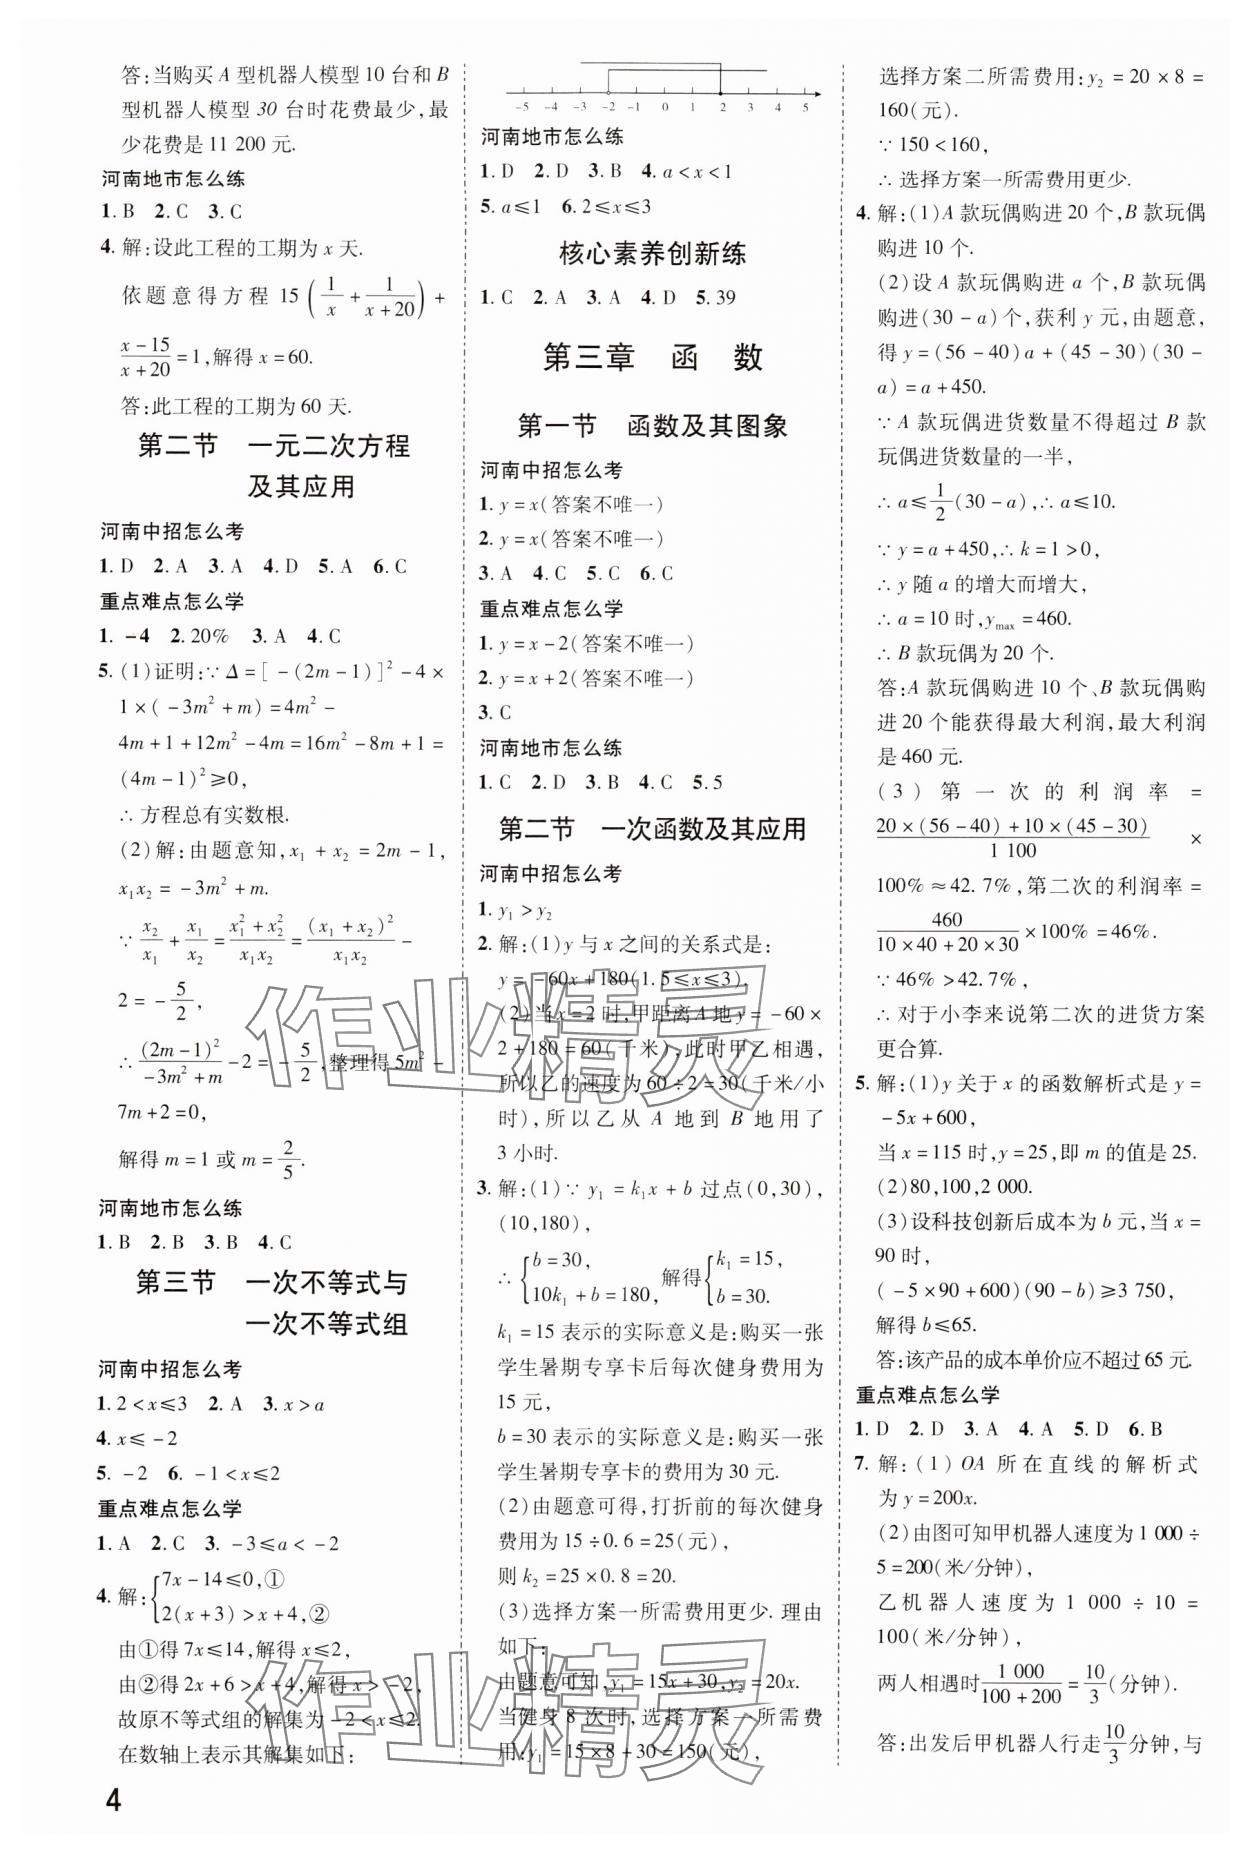 答:当购买 A 型机器人模型 10 台和 B
型机器人模型 30 台时花费最少,最
少花费是 11 200 元.
河南地市怎么练
1. B 2. C 3. C
4. 解:设此工程的工期为 x 天.
依题意得方程 15(1/x + 1/(x+20)) +
(x-15)/(x+20) = 1,解得 x = 60.
答:此工程的工期为 60 天.
第二节 一元二次方程
及其应用
河南中招怎么考
1. D 2. A 3. A 4. D 5. A 6. C
重点难点怎么学
1. -4 2. 20% 3. A 4. C
5. (1)证明:∵ Δ = [-(2m-1)]² - 4 ×
1 × (-3m² + m) = 4m² -
4m + 1 + 12m² - 4m = 16m² - 8m + 1 =
(4m-1)² ≥ 0,
∴ 方程总有实数根.
(2)解:由题意知,x₁ + x₂ = 2m - 1,
x₁x₂ = -3m² + m.
∵ x₂/x₁ + x₁/x₂ = (x₁² + x₂²)/(x₁x₂) = (x₁ + x₂)²/(x₁x₂) -
2 = -5/2,
∴ (2m-1)²/(-3m²+m) - 2 = -5/2,整理得 5m² -
7m + 2 = 0,
解得 m = 1 或 m = 2/5.
河南地市怎么练
1. B 2. B 3. B 4. C
第三节 一次不等式与
一次不等式组
河南中招怎么考
1. 2 < x ≤ 3 2. A 3. x > a
4. x ≤ -2
5. -2 6. -1 < x ≤ 2
重点难点怎么学
1. A 2. C 3. -3 ≤ a < -2
4. 解:{7x - 14 ≤ 0,①
2(x+3) > x + 4,②
由①得 7x ≤ 14,解得 x ≤ 2,
由②得 2x + 6 > x + 4,解得 x > -2,
故原不等式组的解集为 -2 < x ≤ 2.
在数轴上表示其解集如下:
4
-5 -4 -3 -2 -1 0 1 2 3 4 5
河南地市怎么练
1. D 2. D 3. B 4. a < x < 1
5. a ≤ 1 6. 2 ≤ x ≤ 3
核心素养创新练
1. C 2. A 3. A 4. D 5. 39
第三章 函 数
第一节 函数及其图象
河南中招怎么考
1. y = x(答案不唯一)
2. y = x(答案不唯一)
3. A 4. C 5. C 6. C
重点难点怎么学
1. y = x - 2(答案不唯一)
2. y = x + 2(答案不唯一)
3. C
河南地市怎么练
1. C 2. D 3. B 4. C 5. 5
第二节 一次函数及其应用
河南中招怎么考
1. y₁ > y₂
2. 解:(1)y 与 x 之间的关系式是:
y = -60x + 180(1.5 ≤ x ≤ 3).
(2)当 x = 2 时,甲距离 A 地 y = -60 ×
2 + 180 = 60(千米),此时甲乙相遇,
所以乙的速度为 60 ÷ 2 = 30(千米/小
时),所以乙从 A 地到 B 地用了
3 小时.
3. 解:(1)∵ y₁ = k₁x + b 过点(0,30),
(10,180),
∴ {b = 30, 10k₁ + b = 180, 解得{k₁ = 15, b = 30.
k₁ = 15 表示的实际意义是:购买一张
学生暑期专享卡后每次健身费用为
15 元,
b = 30 表示的实际意义是:购买一张
学生暑期专享卡的费用为 30 元.
(2)由题意可得,打折前的每次健身
费用为 15 ÷ 0.6 = 25(元),
则 k₂ = 25 × 0.8 = 20.
(3)选择方案一所需费用更少. 理由
如下:
由题意可知,y₁ = 15x + 30,y₂ = 20x.
当健身 8 次时,选择方案一所需费
用:y₁ = 15 × 8 + 30 = 150(元),
选择方案二所需费用:y₂ = 20 × 8 =
160(元).
∵ 150 < 160,
∴ 选择方案一所需费用更少.
4. 解:(1)A 款玩偶购进 20 个,B 款玩偶
购进 10 个.
(2)设 A 款玩偶购进 a 个,B 款玩偶
购进(30 - a)个,获利 y 元,由题意,
得 y = (56 - 40)a + (45 - 30)(30 -
a) = a + 450.
∵ A 款玩偶进货数量不得超过 B 款
玩偶进货数量的一半,
∴ a ≤ 1/2(30 - a),∴ a ≤ 10.
∵ y = a + 450,∴ k = 1 > 0,
∴ y 随 a 的增大而增大,
∴ a = 10 时,y max = 460.
∴ B 款玩偶为 20 个.
答:A 款玩偶购进 10 个、B 款玩偶购
进 20 个能获得最大利润,最大利润
是 460 元.
(3)第一次的利润率 =
(20 × (56 - 40) + 10 × (45 - 30))/1 100 ×
100% ≈ 42.7%,第二次的利润率 =
460/(10 × 40 + 20 × 30) × 100% = 46%.
∵ 46% > 42.7%,
∴ 对于小李来说第二次的进货方案
更合算.
5. 解:(1)y 关于 x 的函数解析式是 y =
-5x + 600,
当 x = 115 时,y = 25,即 m 的值是 25.
(2)80,100,2 000.
(3)设科技创新后成本为 b 元,当 x =
90 时,
(-5 × 90 + 600)(90 - b) ≥ 3 750,
解得 b ≤ 65.
答:该产品的成本单价应不超过 65 元.
重点难点怎么学
1. D 2. D 3. A 4. A 5. D 6. B
7. 解:(1)OA 所在直线的解析式
为 y = 200x.
(2)由图可知甲机器人速度为 1 000 ÷
5 = 200(米/分钟),
乙机器人速度为 1 000 ÷ 10 =
100(米/分钟),
两人相遇时 1 000/(100 + 200) = 10/3(分钟).
答:出发后甲机器人行走 10/3 分钟,与
作业精灵
作业精灵